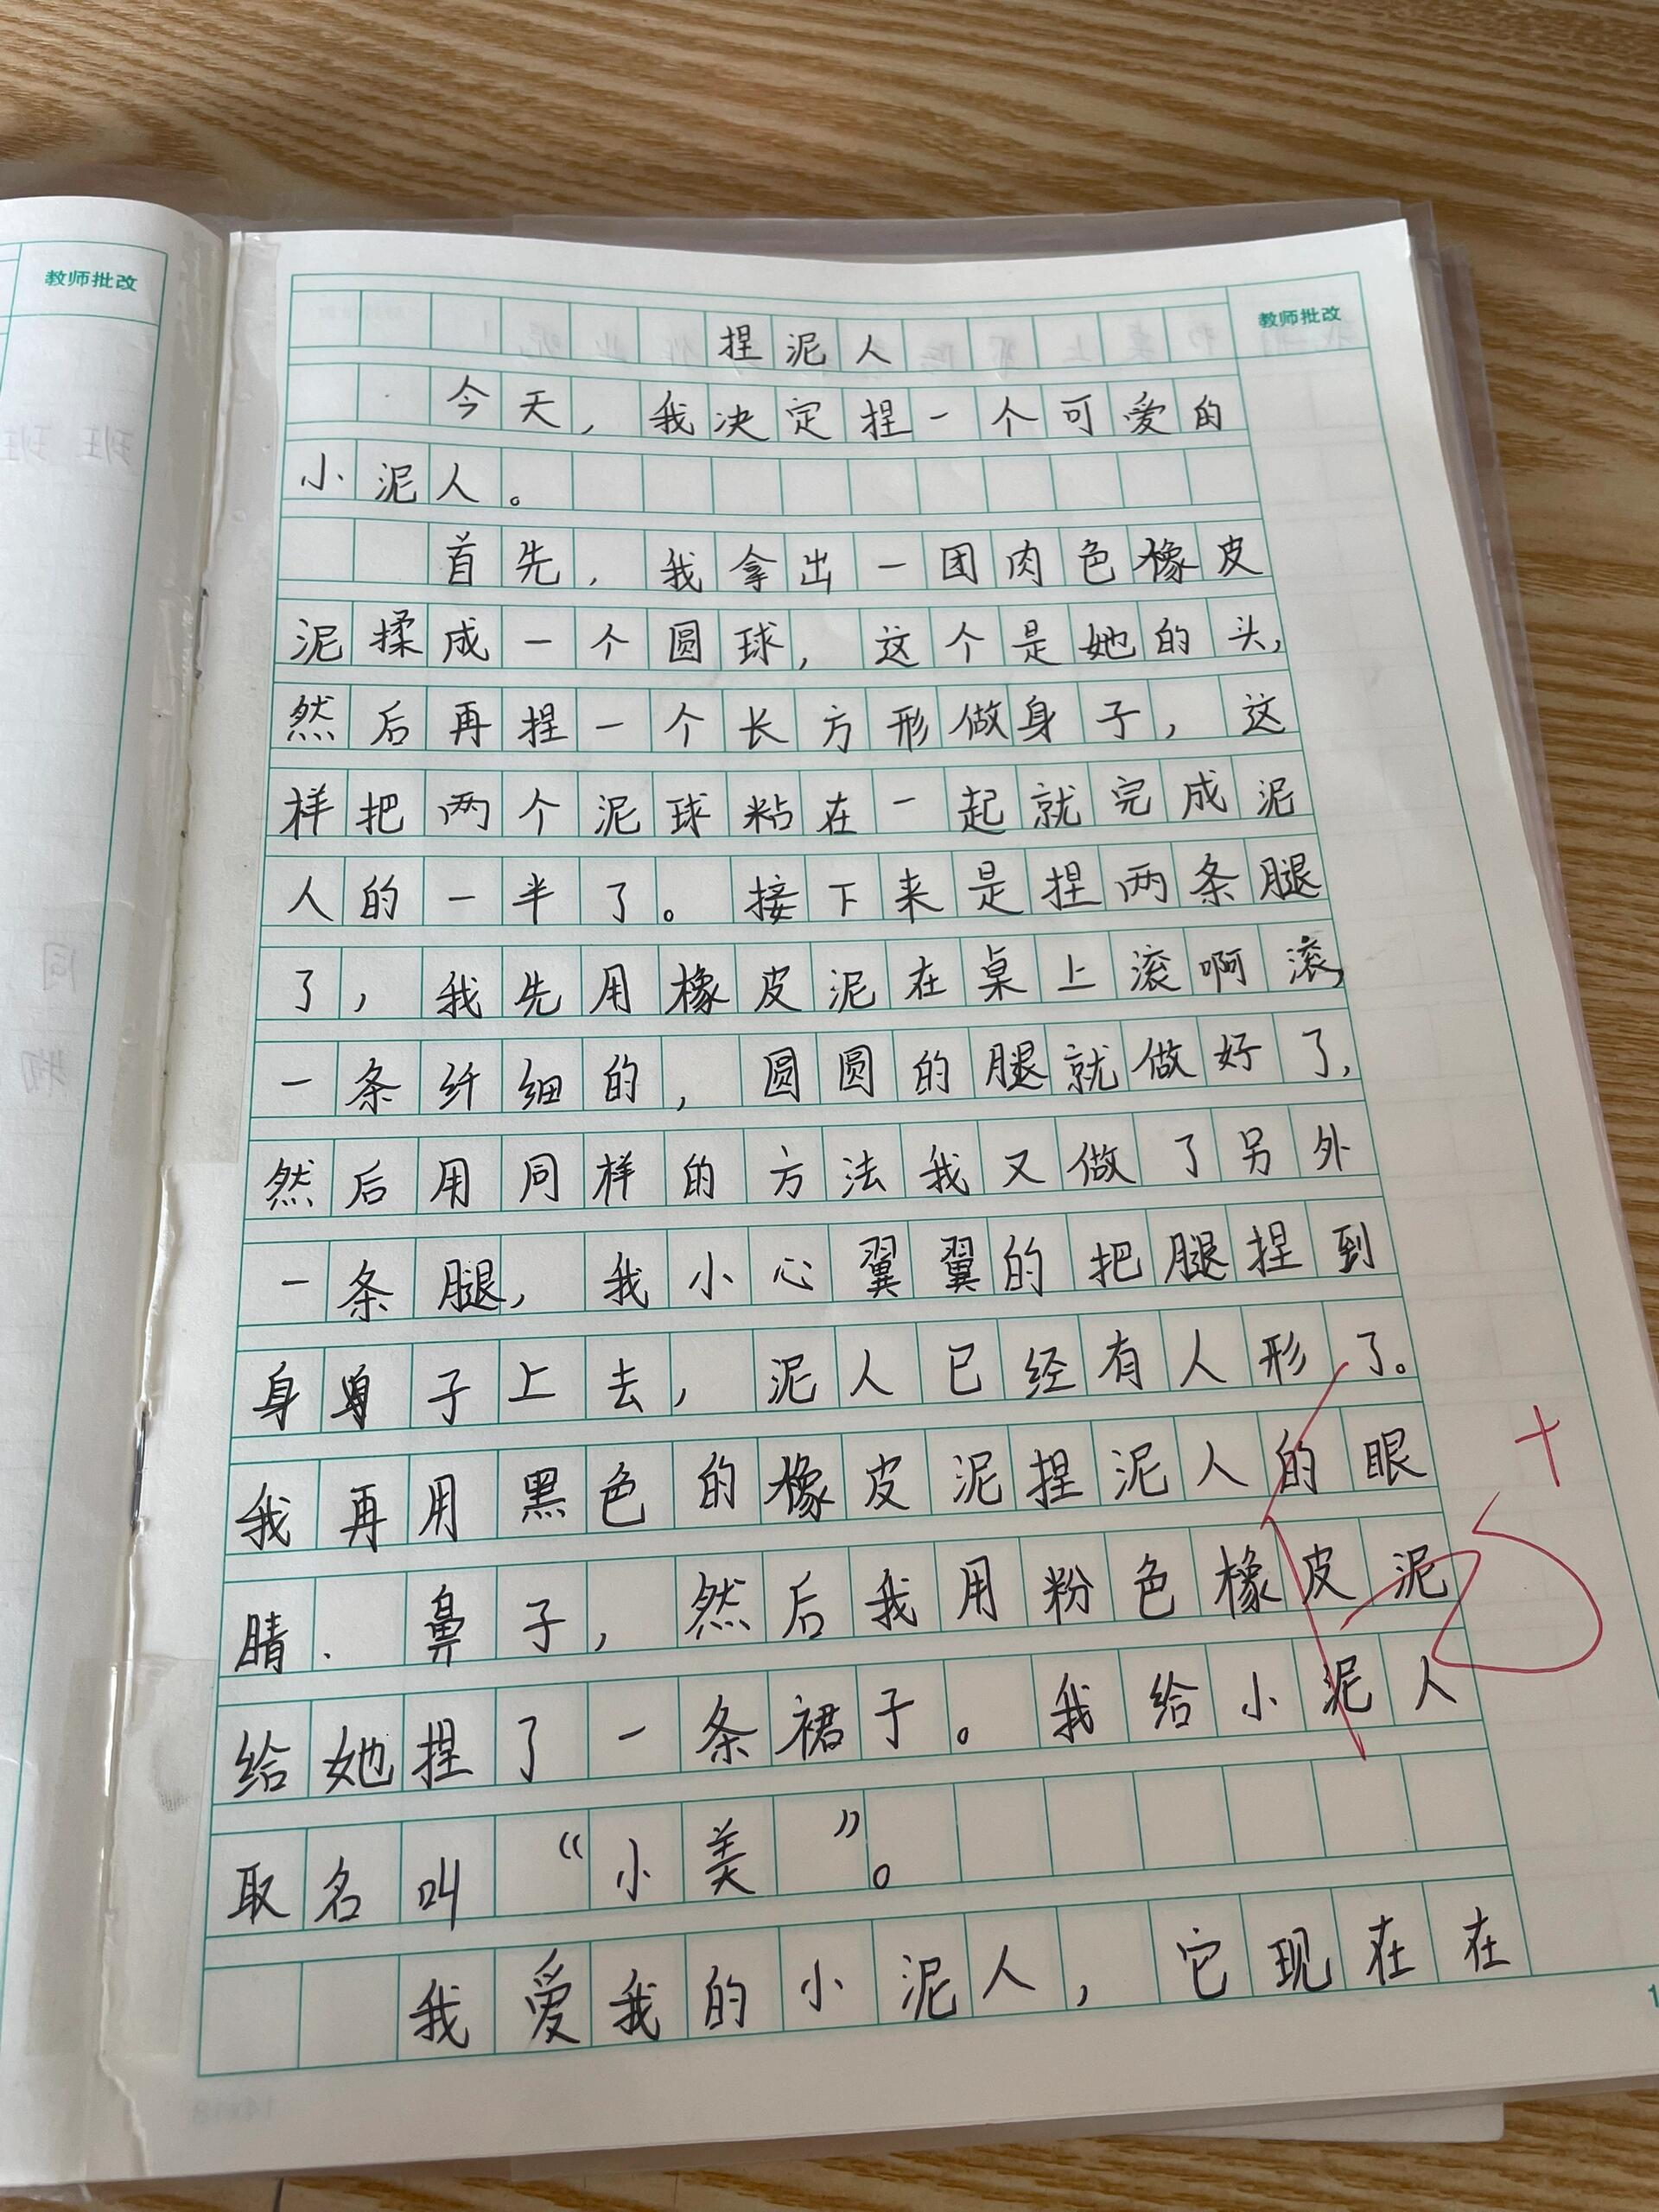 教师批改
教师批改
捏泥人
今天，我决定捏一个可爱的
小泥人。
首先，我拿出一团肉色橡皮
泥揉成一个圆球，这个是她的头，
然后再捏一个长方形做身子，这
样把两个泥球粘在一起就完成泥
人的一半了。接下来是捏两条腿
了，我先用橡皮泥在桌上滚啊滚，
一条纤细的，圆圆的腿就做好了，
然后用同样的方法我又做了另外
一条腿，我小心翼翼的把腿捏到
身身子上去，泥人已经有人形了。
我再用黑色的橡皮泥捏泥人的眼
睛．鼻子，然后我用粉色橡皮泥
给她捏了一条裙子。我给小泥人
取名叫“小美”。
我爱我的小泥人，它现在在